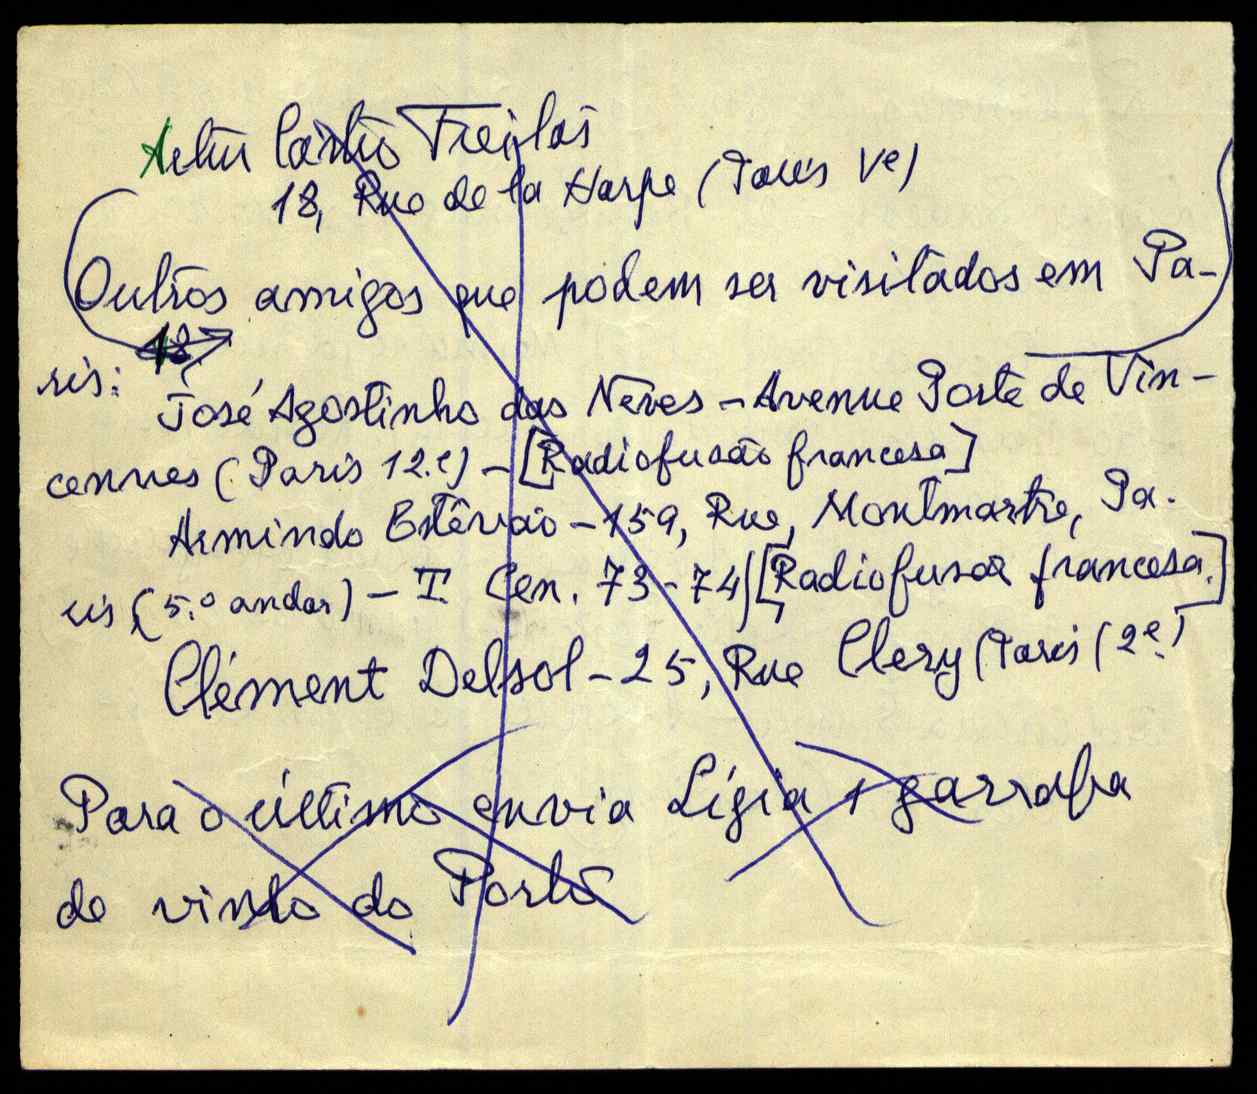 Artur Castro Freitas
18, Rue de la Harpe (Paris Ve)
Outros amigos que podem ser visitados em Pa-
ris:
José Agostinho das Neves - Avenue Porte de Vin-
cennes (Paris 12.e) - [Radiofusão francesa]
Armindo Estêvão - 159, Rue, Montmartre, Pa-
ris (5.º andar) - T. Cen. 73-74) [Radiofusão francesa.]
Clément Delsol - 25, Rue Clery (Paris (2e.)
Para o último envia Lígia 1 garrafa
de vinho do Porto